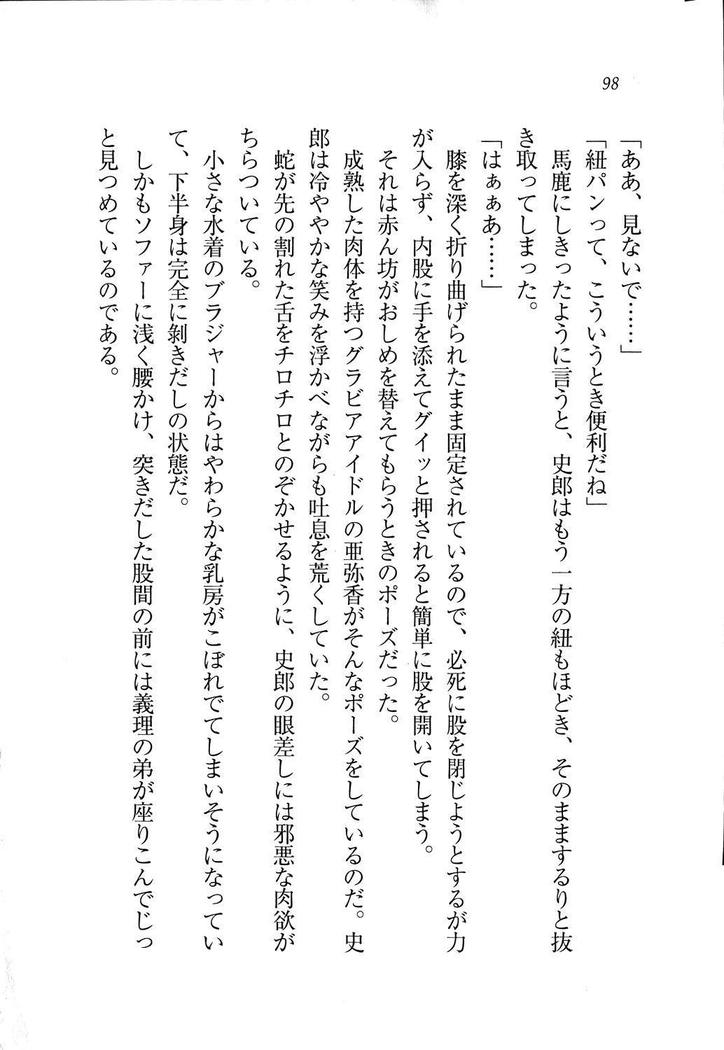 98
「ああ、見ないで……」
「紐パンって、こういうとき便利だね」
馬鹿にしきったように言うと、史郎はもう一方の紐もほどき、そのままするりと抜
き取ってしまった。
「はぁぁあ……」
膝を深く折り曲げられたまま固定されているので、必死に股を閉じようとするが力
が入らず、内股に手を添えてグイッと押されると簡単に股を開いてしまう。
それは赤ん坊がおしめを替えてもらうときのポーズだった。
成熟した肉体を持つグラビアアイドルの亜弥香がそんなポーズをしているのだ。史
郎は冷ややかな笑みを浮かべながらも吐息を荒くしていた。
蛇が先の割れた舌をチロチロとのぞかせるように、史郎の眼差しには邪悪な肉欲が
ちらついている。
小さな水着のブラジャーからはやわらかな乳房がこぼれでてしまいそうになってい
て、下半身は完全に剝きだしの状態だ。
しかもソファーに浅く腰かけ、突きだした股間の前には義理の弟が座りこんでじっ
と見つめているのである。